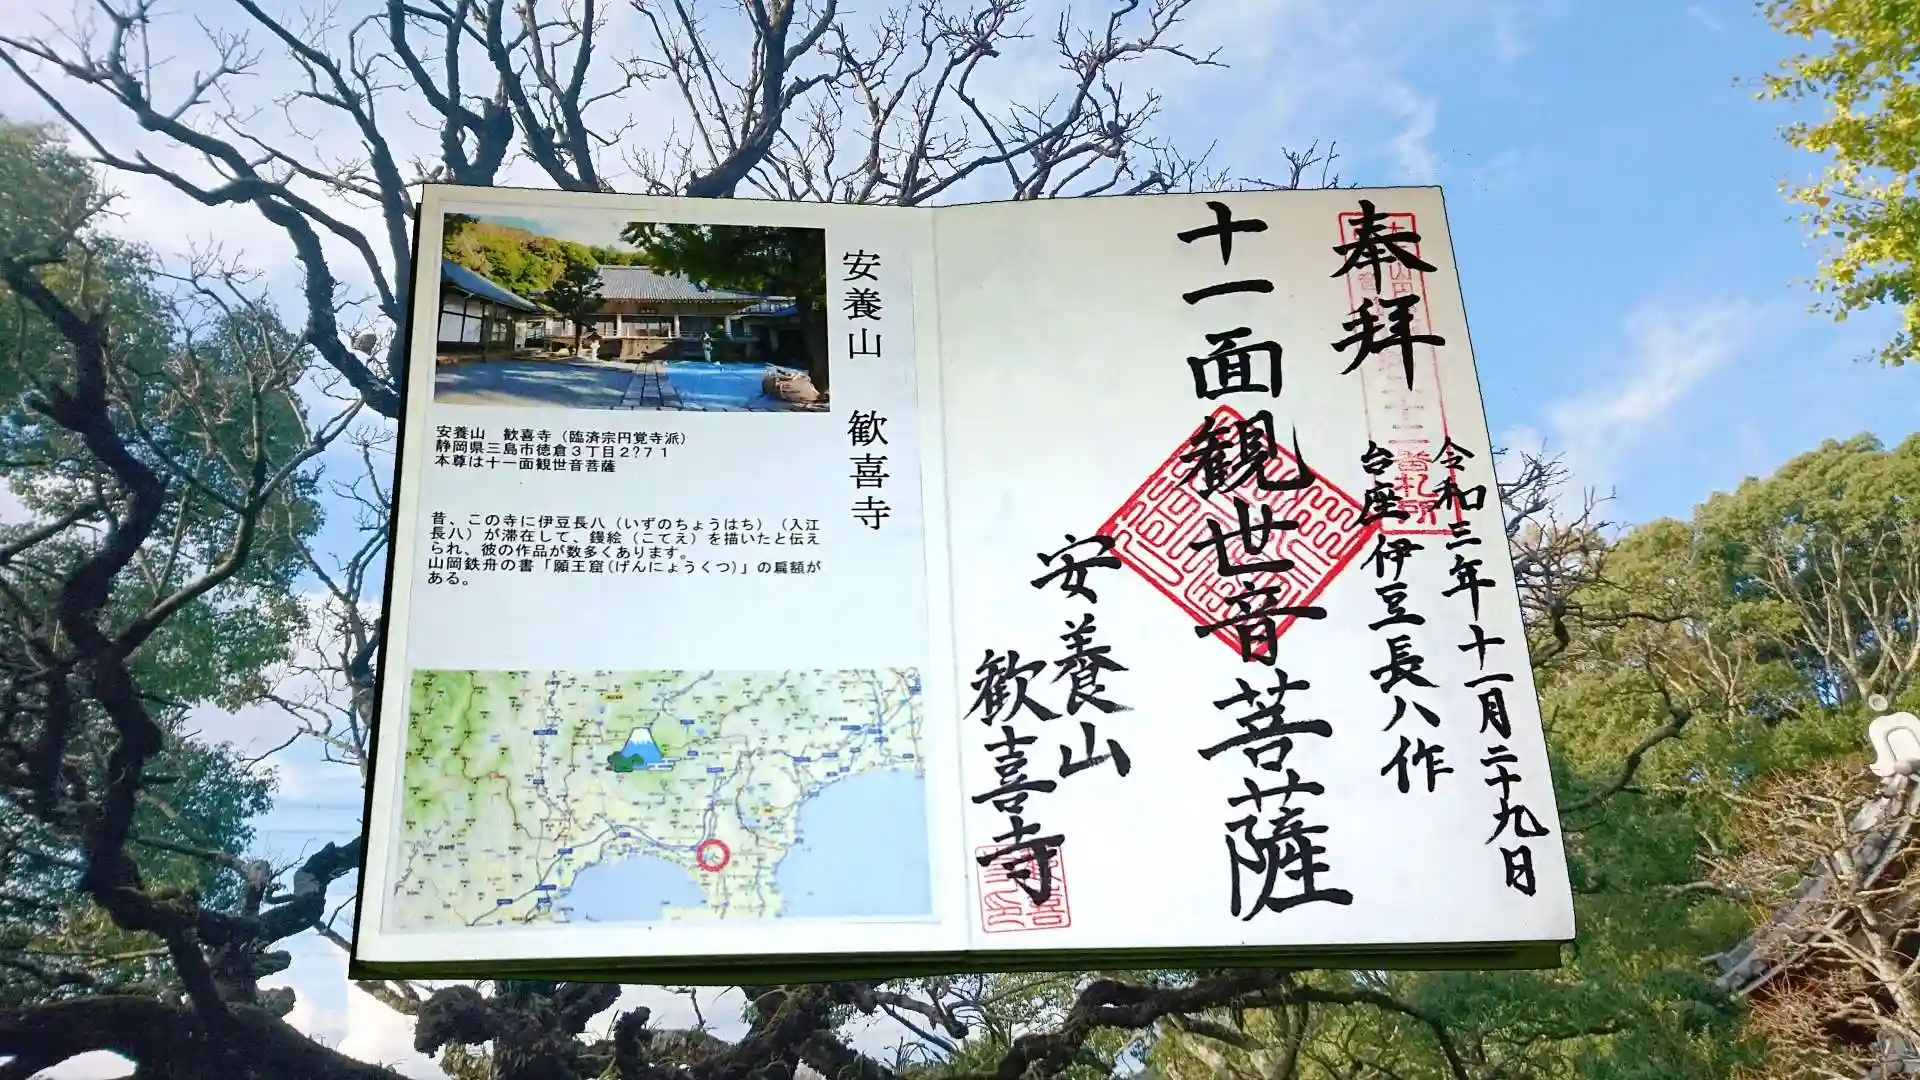 安養山 歓喜寺
安養山 歓喜寺（臨済宗円覚寺派）
静岡県三島市徳倉３丁目２?７１
本尊は十一面観世音菩薩
昔、この寺に伊豆長八（いずのちょうはち）（入江
長八）が滞在して、鏝絵（こてえ）を描いたと伝え
られ、彼の作品が数多くあります。
山岡鉄舟の書「願王窟(げんにょうくつ)」の扁額が
ある。
奉拝
令和三年十一月二十九日
台座 伊豆長八作
十一面観世音菩薩
安養山
歓喜寺